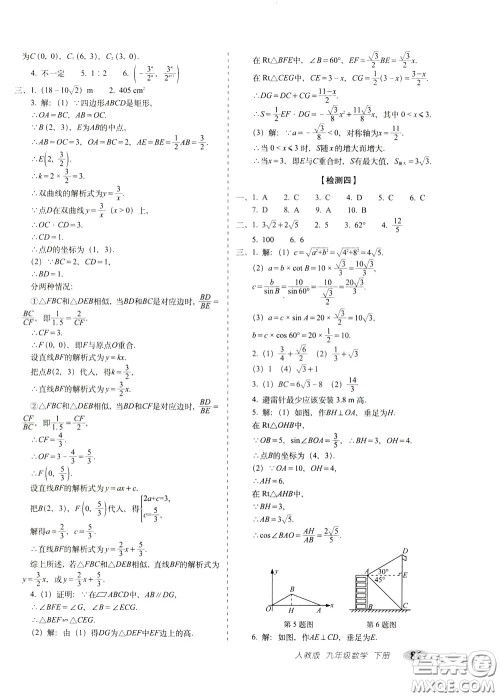 为C(0, 0), C₁(6, 3), C₂(3, 0).
4. 不一定 5. 1∶2 6.
三、1. (18-10√2) m 2. 405 cm²
3. 解：(1) ∵四边形ABCD是矩形,
∴OA=BC, AB=OC.
∵B(2, 3), E为AB的中点,
∴AB=OC=3, OA=BC=2, AE=BE=1/2AB=3/2.
∴E(2, 3/2).
∴k=2×3/2=3.
∴双曲线的解析式为y=3/x.
∵点D在双曲线y=3/x (x>0)上,
∴CD=1.
∴点D的坐标为(1, 3).
(2) ∵BC=2, CD=1,
∴BD=1.
分两种情况:
①△FBC和△DEB相似, 当BD和BC是对应边时, BD/BC=BE/CF, 即1/2=1.5/CF.
∴CF=3.
∴F(0, 0), 即F与原点O重合.
设直线BF的解析式为y=kx.
把点B(2, 3)代入, 得k=3/2,
∴直线BF的解析式为y=3/2x.
②△FBC和△DEB相似, 当BD和CF是对应边时,
∴CF=4/3.
∴OF=3-4/3=5/3.
∴F(0, 5/3).
设直线BF的解析式为y=ax+c.
把B(2, 3), F(0, 5/3)代入, 得{2a+c=3, c=5/3.
解得a=2/3, c=5/3.
∴直线BF的解析式为y=2/3x+5/3.
综上所述, 若△FBC和△DEB相似, 直线BF的解析式为y=3/2x, 或y=2/3x+5/3.
4. (1)证明: ∵在▱ABCD中, AB∥DG,
∴∠B=∠GCE.
(2)解: 由(1)得DG为△DEF中EF边上的高.
在Rt△BFE中, ∠B=60°,
在Rt△CEG中, CE=3-x,
∴DG=DC+CG=(11-x)/2.
∴S=1/2EF·DG=-√3/8x²+11√3/8x, 其中0<x≤3.
(3)解: ∵a=-√3/8<0, 对称轴为x=11/2,
∴当0<x≤3时, S随x的增大而增大.
∴当x=3, 即E与C重合时, S有最大值, S最大=3√3.
【检测四】
一、1. A 2. C 3. A 4. C 5. D 6. C
7. D 8. A 9. A 10. B
二、1. 3√2+2√5 2. 5 3. 62° 4. 12/5
5. 100 6. 6
三、1. 解: (1) c=√(a²+b²)=√(4²+8²)=4√5.
(3) a=c×sin A=20×√3/2=10√3,
b=c×cos 60°=20×1/2=10.
2. (1) 3/4+√6/2 (2) 1/3+√3
(3) 1 (4) √3+1
3. (1) BC=6√3-8 (2) 14/3
4. 避雷针最少应该安装3.8 m高.
5. 解: (1) 如图, 作BH⊥OA, 垂足为H.
在Rt△OHB中,
∵OB=5, sin∠BOA=3/5, ∴BH=3, OH=4.
∴点B的坐标为(4, 3).
(2) ∵OA=10, OH=4,
∴AH=6.
在Rt△AHB中,
∵BH=3,
∴AB=3√5.
∴cos∠BAO=AH/AB=2√5/5.
y B O H A x
A 30° E 45°
第5题图 第6题图
6. 解: 如图, 作AE⊥CD, 垂足为E.
人教版 九年级数学 下册